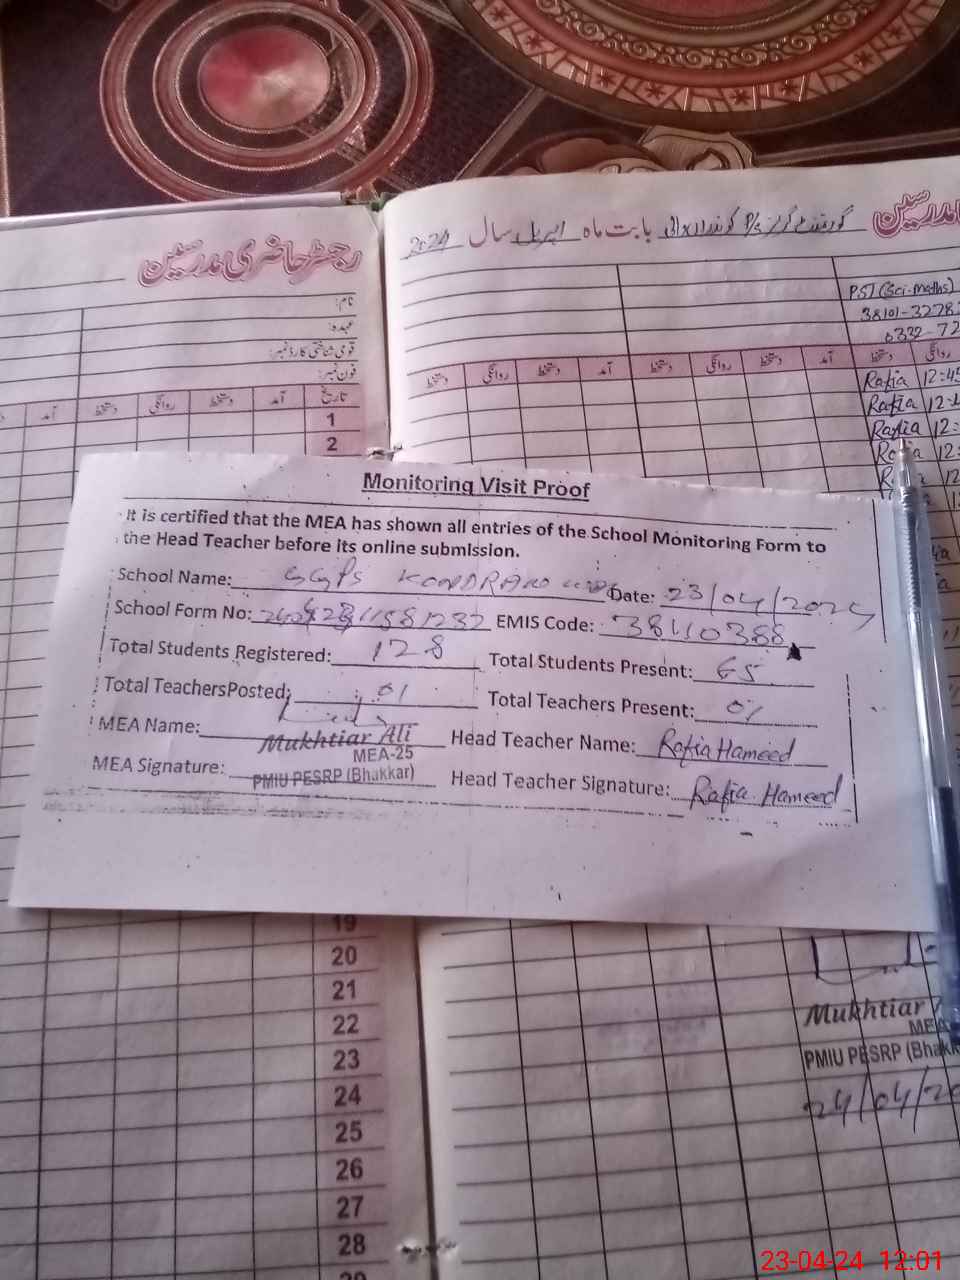 رجسٹر حاضری مدرسین
مدرسین
گورنمنٹ گرلز P/S بابت ماہ اپریل سال 2024
نام:
عہدہ:
قومی شناختی کارڈ نمبر:
فون نمبر:
PST (Sci-maths)
38101-3278
0332-72
تاریخ آمد دستخط روانگی دستخط آمد
روانگی دستخط آمد دستخط روانگی دستخط آمد دستخط روانگی دستخط
1
2
Rafia 12:45
Rafia 12:
Rafia 12:
12:
12
Monitoring Visit Proof
It is certified that the MEA has shown all entries of the School Monitoring Form to
the Head Teacher before its online submission.
School Name: GGPS Date: 23/04/2024
School Form No: EMIS Code: 38110388
Total Students Registered: 128 Total Students Present: 65
Total TeachersPosted: 01 Total Teachers Present: 01
MEA Name: Mukhtiar Ali Head Teacher Name: Rafia Hameed
MEA-25
MEA Signature: PMIU PESRP (Bhakkar) Head Teacher Signature: Rafia Hameed
19
20
21
22
23
24
25
26
27
28
Mukhtiar
MEA
PMIU PESRP (Bhakk
24/04/20
23-04-24 12:01